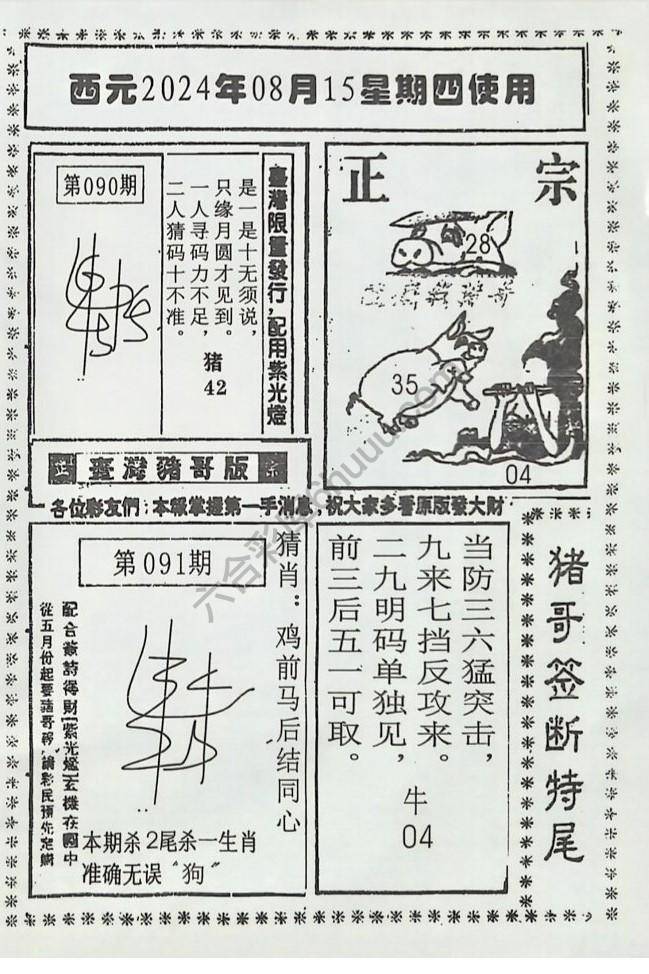 西元2024年08月15星期四使用
第090期
是一是十无须说,
只缘月圆才见到。
一人寻码力不足,
二人猜码十不准。
猪
42
臺灣限量發行,配用紫光燈
正宗
28
35
04
正 臺灣豬哥版 宗
各位彩友們:本報掌握第一手消息,祝大家多看原版發大財
第091期
猜肖:鸡前马后结同心
從五月份起要豬哥報
本期杀2尾杀一生肖
准确无误“狗”
当防三六猛突击,
九来七挡反攻来。
二九明码单独见,
前三后五一可取。
牛
04
猪哥签断特尾
六合彩库